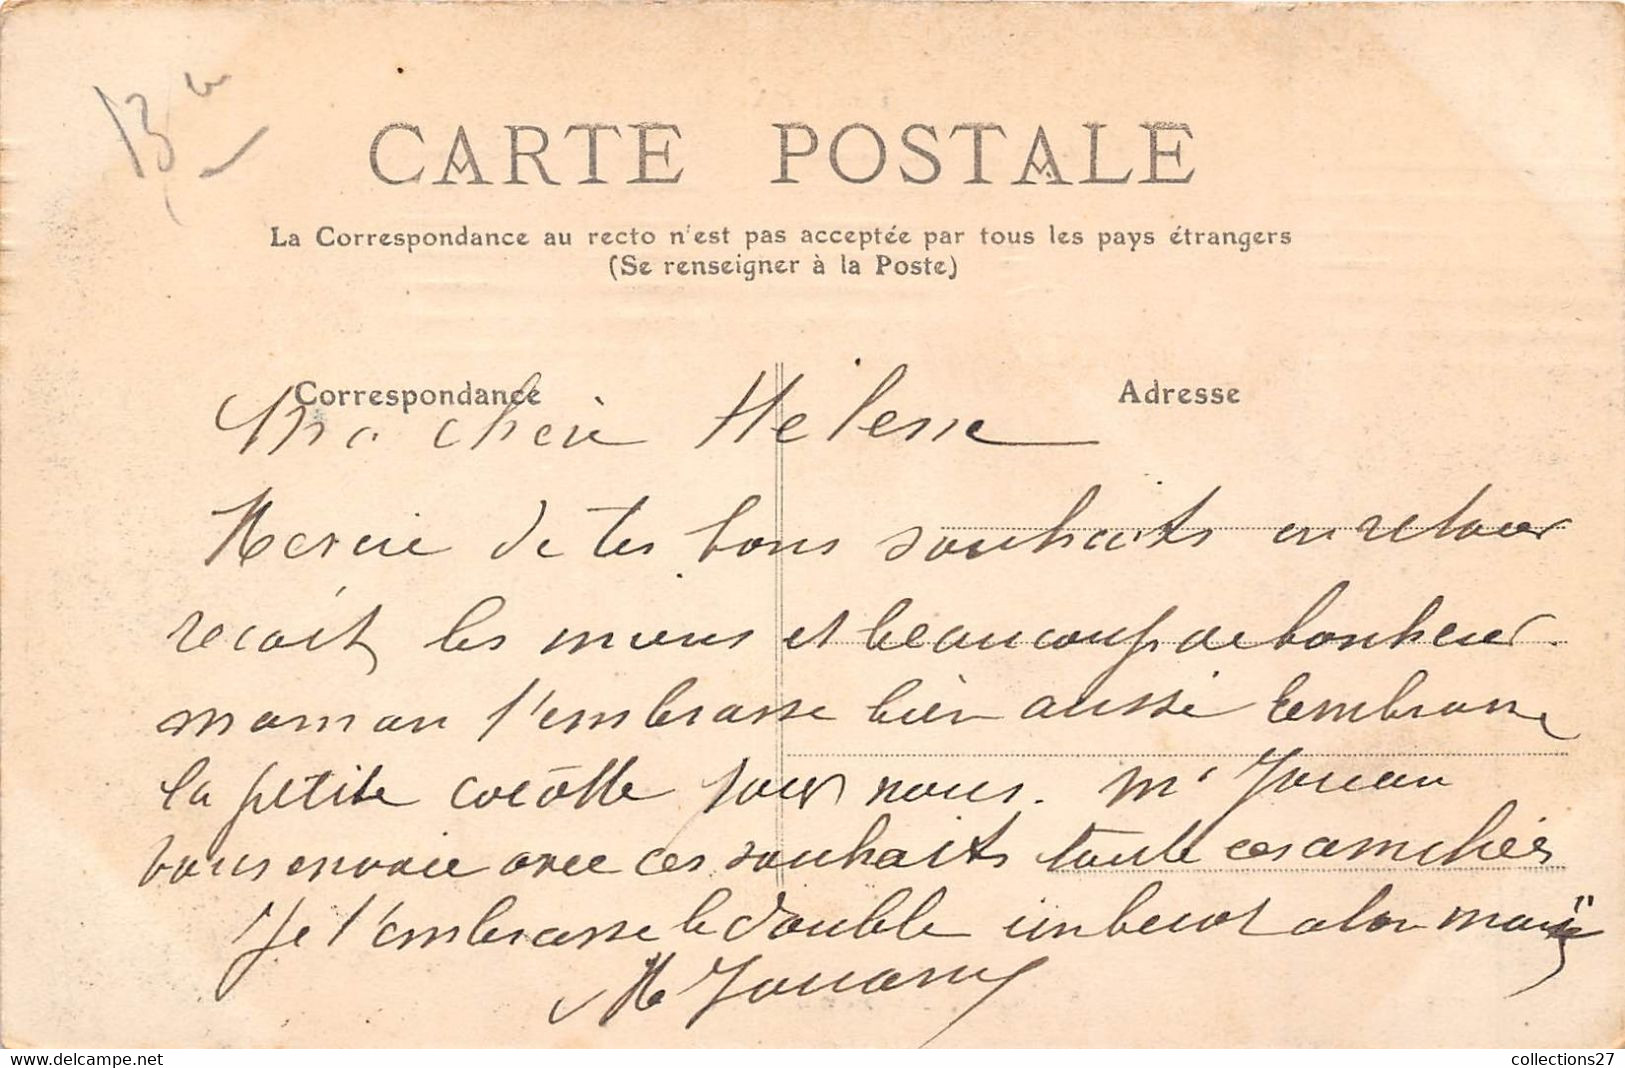 13
CARTE POSTALE
La Correspondance au recto n'est pas acceptée par tous les pays étrangers
(Se renseigner à la Poste)
Correspondance
Adresse
Ma cheri Helene
Mercie de tes bons souhaits en retour
recoit les miens et beaucoup de bonheur.
maman t'embrasse bien aussi embrasse
la petite cocotte pour nous. Mr Jouan
vous envoie avec ces souhaits toute ces amitiées
Je t'embrasse le double un besot a ton
Me Jouan
collections27
www.delcampe.net